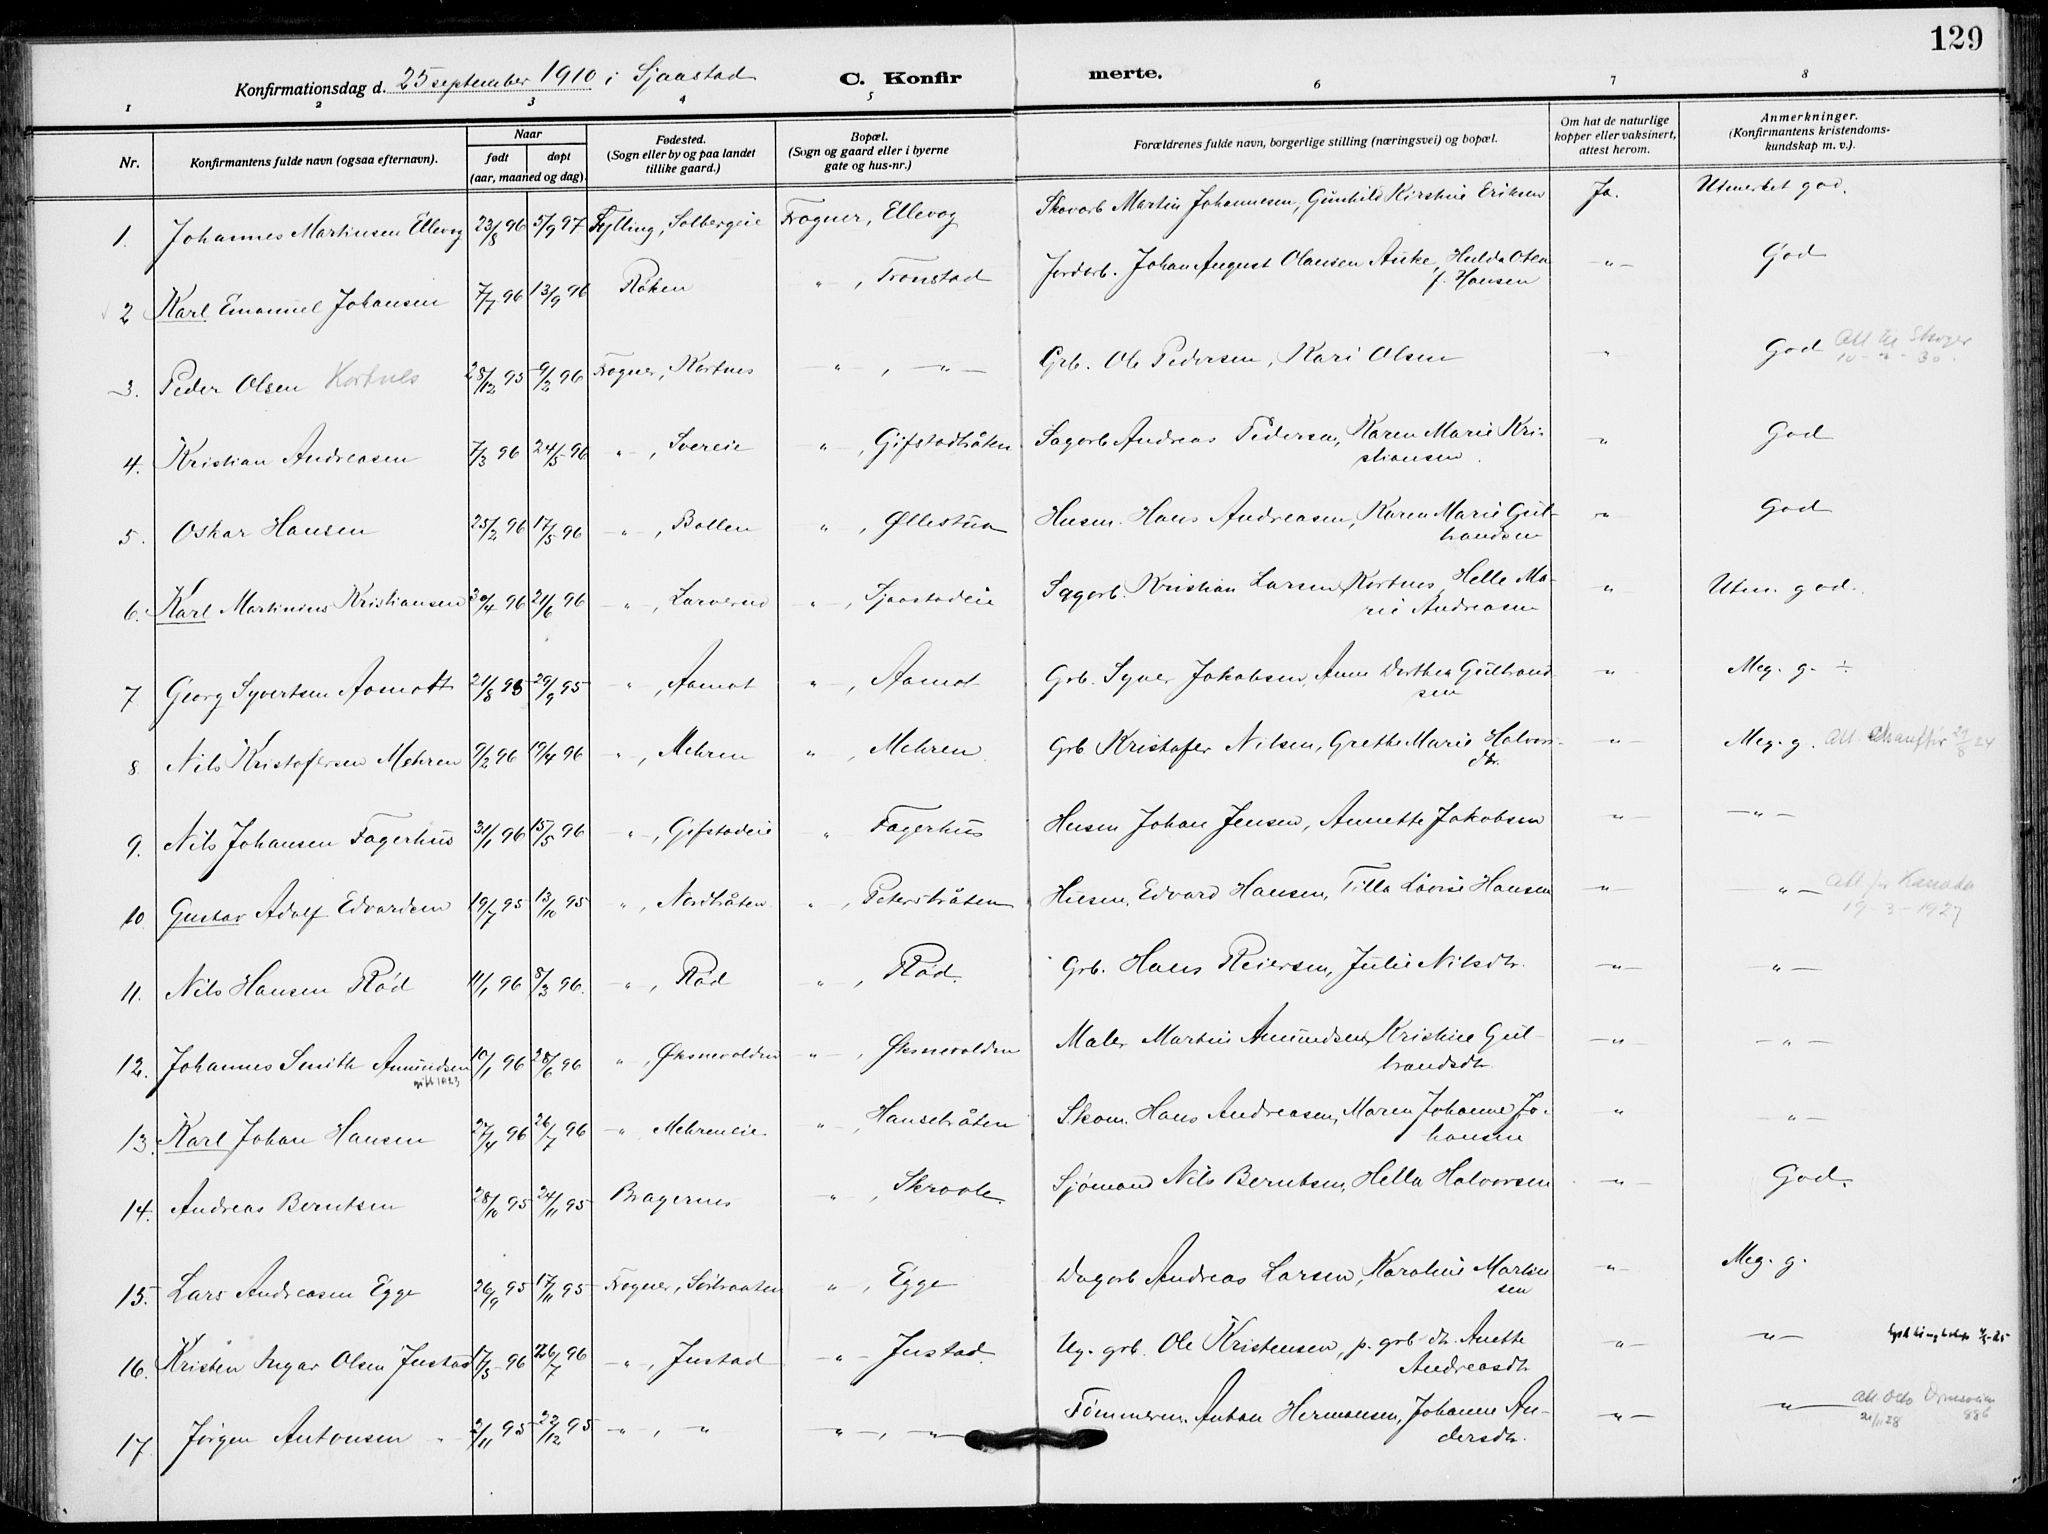 129
Konfirmationsdag d. 25 september 1910 i Sjaastad C. Konfirmerte.
1 2 3 4 5 6 7 8
Nr. Konfirmantens fulde navn (ogsaa efternavn). Naar født døpt (aar, maaned og dag). Fødested. (Sogn eller by og paa landet tillike gaard.) Bopæl. (Sogn og gaard eller i byerne gate og hus-nr.) Forældrenes fulde navn, borgerlige stilling (næringsvei) og bopæl. Om hat de naturlige kopper eller vaksinert, attest herom. Anmerkninger. (Konfirmantens kristendomskundskap m. v.).
1. Johannes Martinsen Ellevog 23/8 96 5/9 97 Sylling, Solbergeie Frogner, Ellevog Skovarb Martin Johannesen, Gunhild Kirstine Eriksen Ja. Utmerket god.
2 Karl Emanuel Johansen 7/7 96 13/9 96 Røken " , Tronstad Jordarb. Johan August Olausen Aske, Hulda Olea f. Hansen " God
3. Peder Olsen Kortnes 28/12 95 9/2 96 Frogner, Kortnes " , " Grb. Ole Pedersen, Kari Olsen " God Att til Skoger
4. Kristian Andreasen 7/3 96 24/5 96 " , Svereie " , Gifstadbråten Sagarb Andreas Pedersen, Karen Marie Kristiansen. " God
5. Oskar Hansen 25/2 96 17/5 96 " , Bollen " , Øllestua Husm. Hans Andreasen, Karen Marie Gulbrandsen " God
6. Karl Martinius Kristiansen 30/4 96 21/6 96 " , Larverud " , Sjaastadeie Sagarb. Kristian Larsen Kortnes, Helle Marie Andreasen " Utm. god.
7 Georg Syvertsen Aamott 21/8 95 29/9 95 " , Aamot " , Aamot Grb. Syver Jakobsen, Anne Dorthea Gulbrandsen " Meg. g. ÷
8. Nils Kristofersen Mehren 9/2 96 19/4 96 " , Mehren " , Mehren Grb Kristofer Nilsen, Grethe Marie Halvorsdtr. " Meg. g. Att. chauffør 29/8 24
9. Nils Johansen Fagerhus 31/1 96 15/5 96 " , Gifstadeie " Fagerhus Husm Johan Jensen, Annette Jakobsen " "
10. Gustav Adolf Edvardsen 19/7 95 13/10 95 " , Nordbråten " , Petersbråten Husm. Edvard Hansen, Tilla Lovise Hansen " " Att for Kanada 17-3-1927
11. Nils Hansen Rød 11/1 96 8/3 96. " , Rød " , Rød. Grb. Hans Reiersen, Julie Nilsdtr. " "
12. Johannes Smith Amundsen gift 1923 10/1 96 28/6 96 " , Øksnevolden " , Øksnevolden Maler Martin Amundsen, Kristine Gulbrandsdtr. " "
13. Karl Johan Hansen 27/4 96 26/7 96 " , Mehreneie. " , Hansebråten Skom. Hans Andreasen, Maren Johanne Johansen " "
14. Andreas Berntsen 28/10 95 24/11 95 Bragernes " , Skroale. Sjømand Nils Berntsen, Hella Halvorsen " God.
15. Lars Andreasen Egge 26/9 95 17/11 95 Frogner, Sørbraaten " , Egge Dagarb Andreas Larsen, Karoline Martinsen " Meg. g.
16. Kristen Ingar Olsen Justad 17/3 96 26/7 96 " , Justad " Justad. Ug. grb. Ole Kristensen, p. grb dtr. Anette Andreasdtr " "
17. Jørgen Antonsen 2/11 95 22/12 95 " , " " , " Tømmerm. Anton Hermansen, Johanne Andersdtr. " " Att Oslo 21/11 28